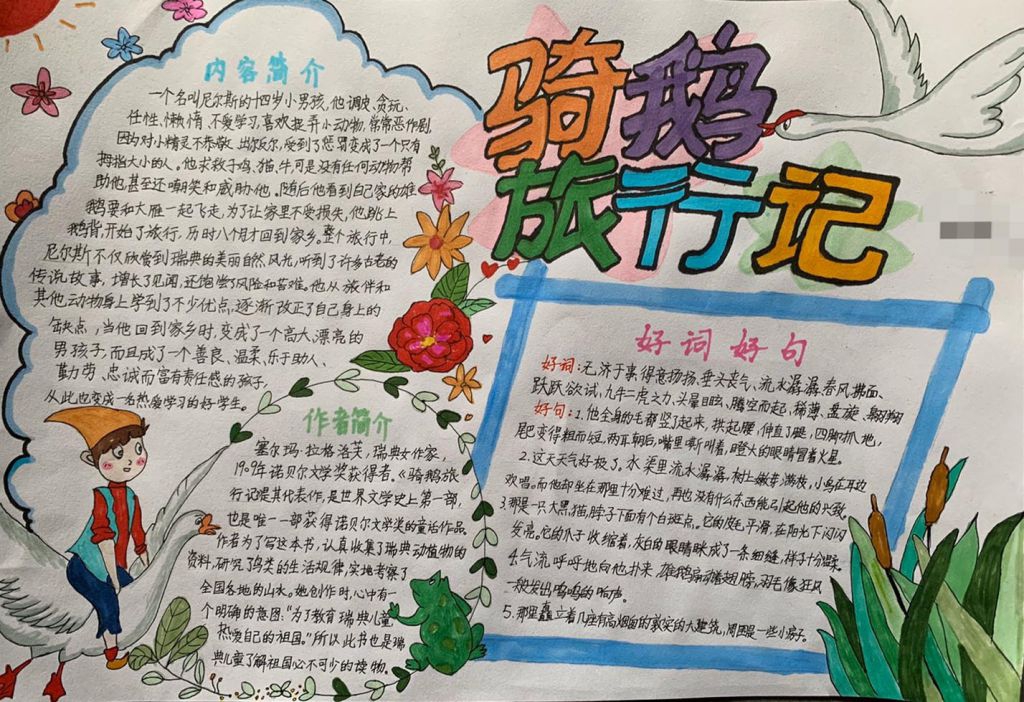 骑鹅
旅行记
内容简介
一个名叫尼尔斯的十四岁小男孩,他调皮、贪玩、
任性、懒惰、不爱学习,喜欢捉弄小动物,常常恶作剧,
因为对小精灵不恭敬、出尔反尔,受到了惩罚变成了一个只有
拇指大小的人。他求救于鸡、猫、牛可是没有任何动物帮
助他,甚至还嘲笑和威胁他。随后他看到自己家的雄
鹅要和大雁一起飞走,为了让家里不受损失,他跳上
鹅背开始了旅行,历时八个月才回到家乡。整个旅行中,
尼尔斯不仅欣赏到瑞典的美丽自然风光,听到了许多古老的
传说故事,增长了见闻,还饱尝了风险和苦难。他从旅伴和
其他动物身上学到了不少优点,逐渐改正了自己身上的
缺点,当他回到家乡时,变成了一个高大、漂亮的
男孩子,而且成了一个善良、温柔、乐于助人、
勤劳、忠诚而富有责任感的孩子,
从此也变成一名热爱学习的好学生。
作者简介
塞尔玛·拉格洛芙,瑞典女作家,
1909年诺贝尔文学奖获得者。《骑鹅旅
行记是其代表作,是世界文学史上第一部,
也是唯一部获得诺贝尔文学奖的童话作品。
作者为了写这本书,认真收集了瑞典动植物的
资料,研究了鸟类的生活规律,实地考察了
全国各地的山水。她创作时,心中有一
个明确的意图:“为了教育瑞典儿童
热爱自己的祖国。”所以此书也是瑞
典儿童了解祖国必不可少的读物。
好词好句
好词:无济于事、得意扬扬、垂头丧气、流水潺潺、春风拂面、
跃跃欲试、九牛二虎之力、头晕目眩、腾空而起、稀薄、盘旋、翱翔
好句:1.他全身的毛都竖了起来,拱起腰,伸直了腿,四脚抓地,
尾巴变得粗而短,两耳朝后,嘴里嘶叫着,瞪大的眼睛冒着火星。
2.这天天气好极了,水渠里流水潺潺,树上嫩芽满枝,小鸟在耳边
欢唱。而他却坐在那里十分难过,再也没有什么东西能引起他的兴致
3.那是一只大黑猫,脖子下面有个白斑点。它的皮毛平滑,在阳光下闪闪
发亮。它的爪子收缩着,灰白的眼睛眯成了一条细缝,样子十分温柔。
4.气流呼呼地向他扑来,雄鹅扇动着翅膀,羽毛像狂风
一般发出呜呜的响声。
5.那里矗立着几座有高烟囱的坚实的大建筑,周围是一些小房子。